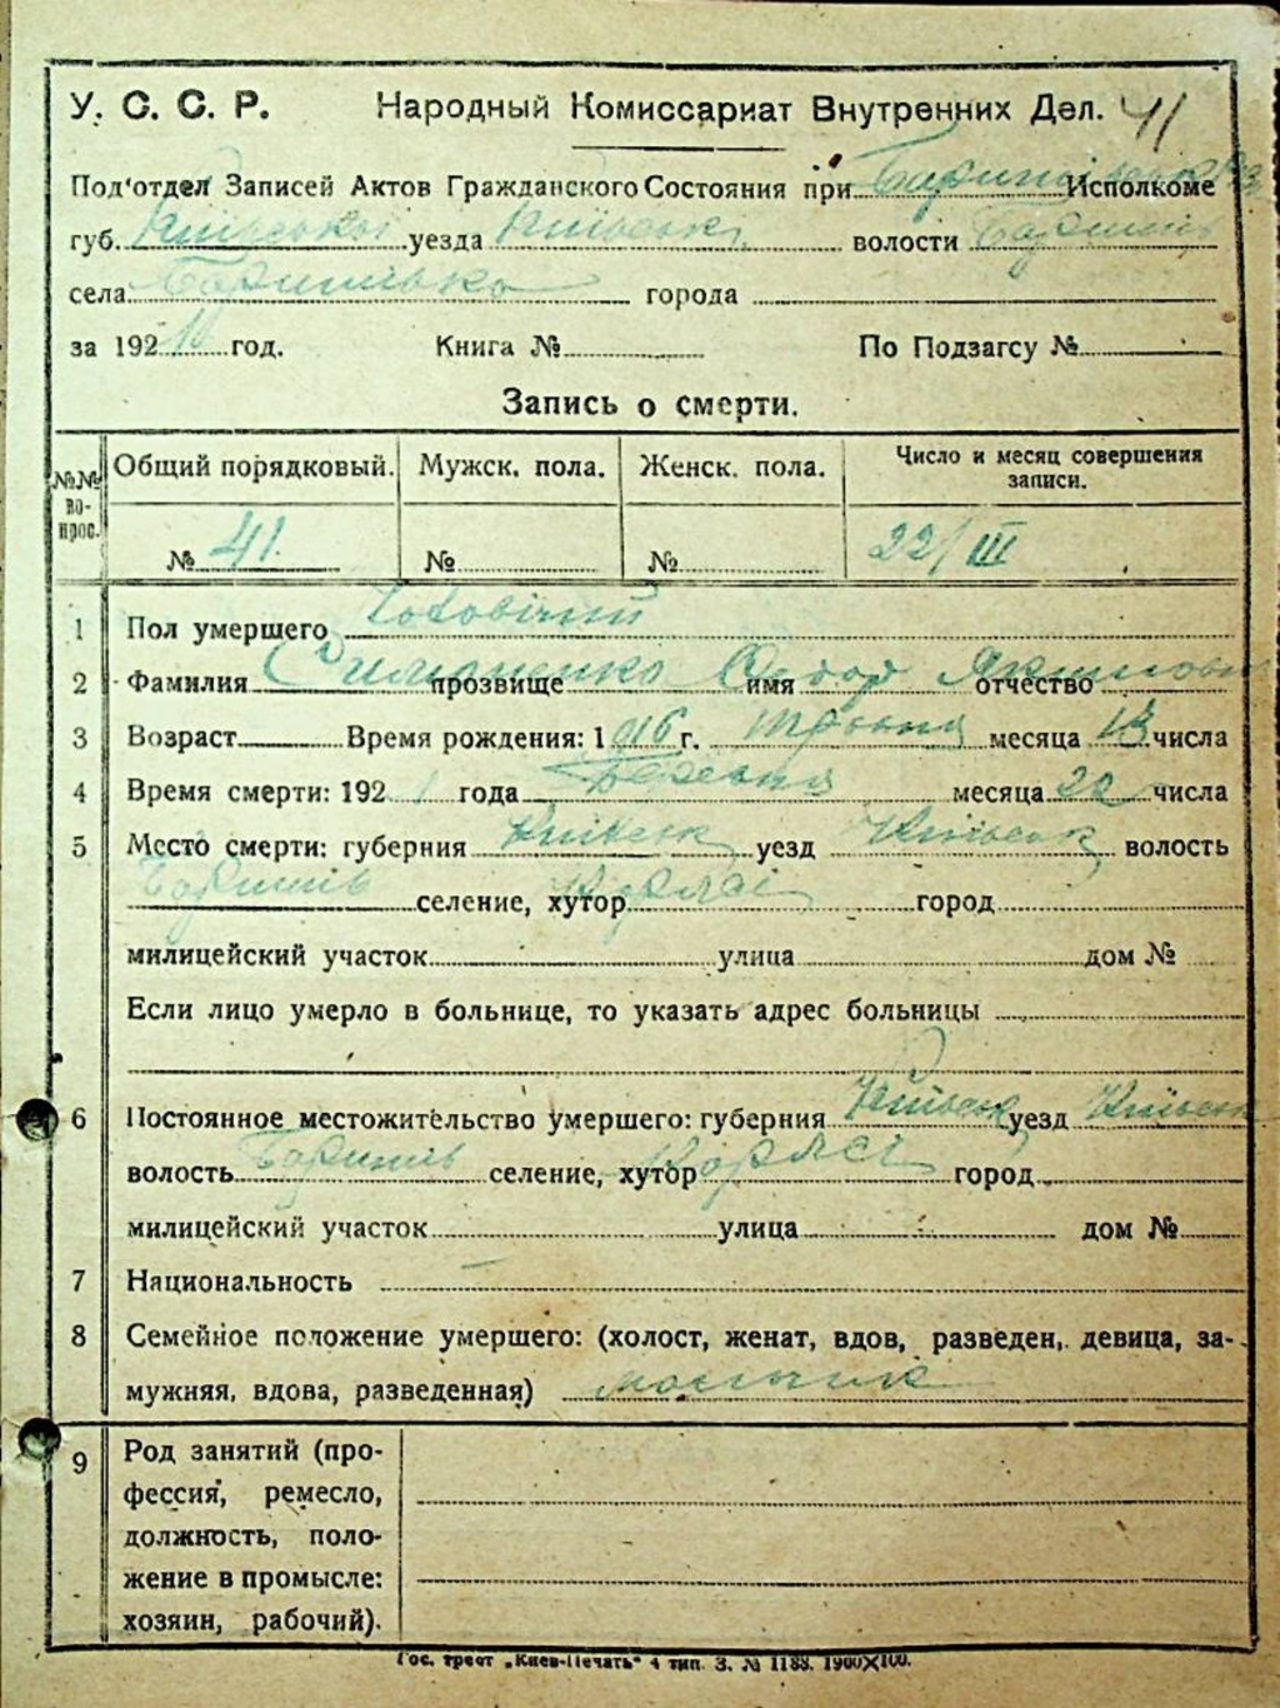 У. С. С. Р. Народный Комиссариат Внутренних Дел. 41
Под'отдел Записей Актов Гражданского Состояния при Исполкоме
губ. Київської уезда Київськ волости Баришів
села Баришівка города
за 192 год. Книга № По Подзагсу №
Запись о смерти.
№№ вопрос. Общий порядковый. Мужск. пола. Женск. пола. Число и месяц совершения записи.
№ 41. № № 22/III
1 Пол умершего Чоловічий
2 Фамилия Симоненко прозвище имя отчество Якимов
3 Возраст Время рождения: 1916 г. Травня месяца 13 числа
4 Время смерти: 1921 года Березня месяца 22 числа
5 Место смерти: губерния Київськ уезд Київськ волость
Баришів селение, хутор Корласі город
милицейский участок улица дом №
Если лицо умерло в больнице, то указать адрес больницы
6 Постоянное местожительство умершего: губерния Київськ уезд Київськ
волость Баришів селение, хутор город
милицейский участок улица дом №
7 Национальность
8 Семейное положение умершего: (холост, женат, вдов, разведен, девица, за-
мужняя, вдова, разведенная)
9 Род занятий (про-
фессия, ремесло,
должность, поло-
жение в промысле:
хозяин, рабочий).
Гос. трест „Киев-Печать" 4 тип. З. № 1188. 1900X100.